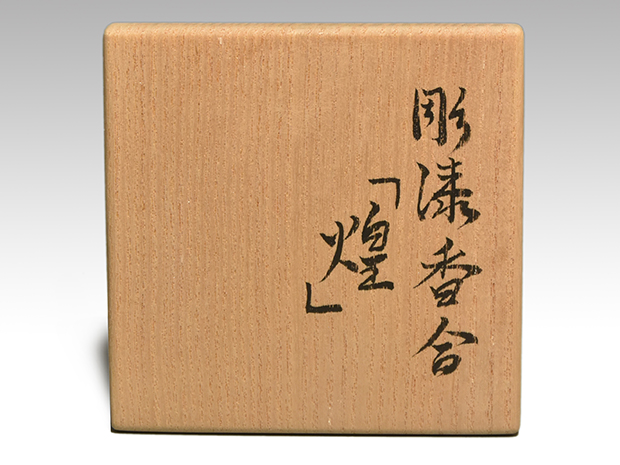 彫漆香合
「煌」